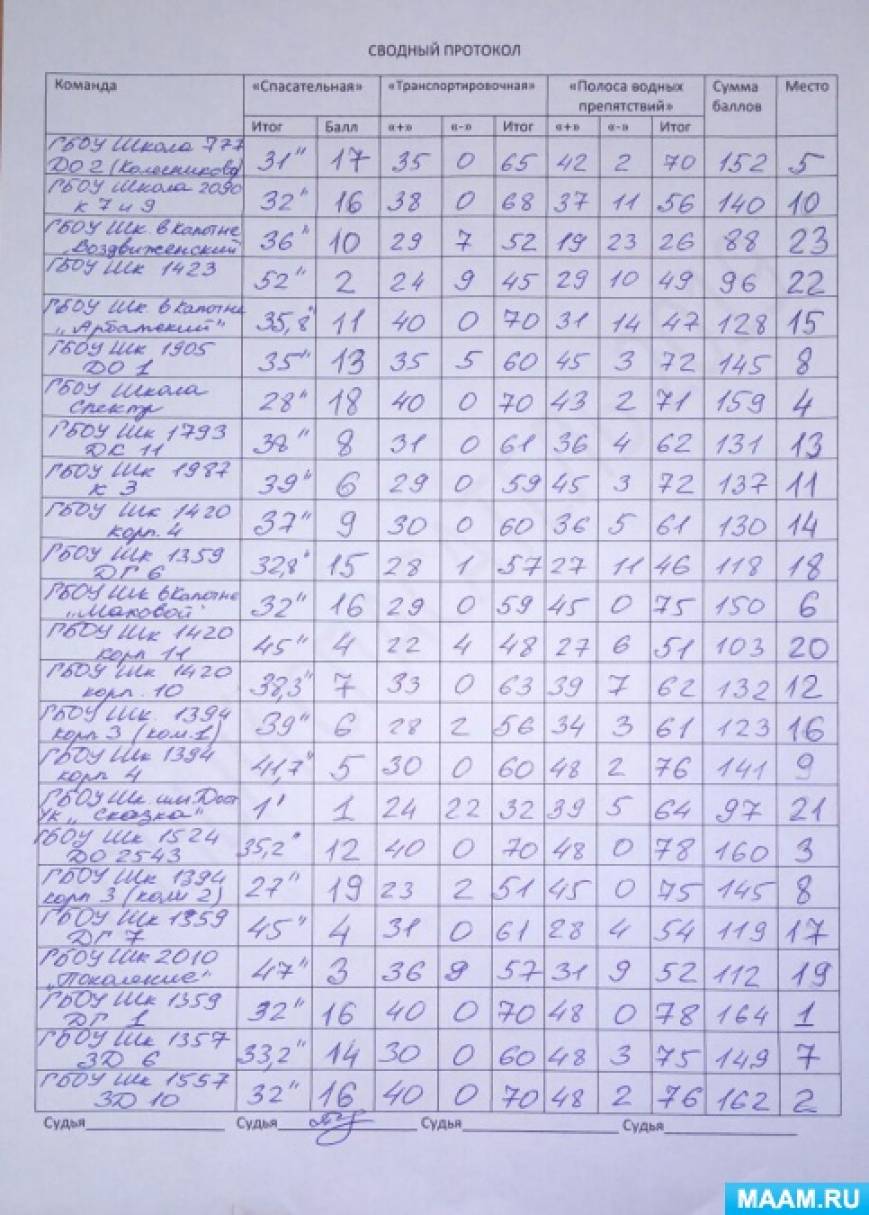 СВОДНЫЙ ПРОТОКОЛ
Команда «Спасательная» «Транспортировочная» «Полоса водных препятствий» Сумма баллов Место
Итог Балл «+» «-» Итог «+» «-» Итог
ГБОУ Школа 777
ДО 2 (Колесникова) 31" 17 35 0 65 42 2 70 152 5
ГБОУ Школа 2090
к 7 и 9 32" 16 38 0 68 37 11 56 140 10
ГБОУ Шк. в Капотне
„Воздвиженский" 36" 10 29 7 52 19 23 26 88 23
ГБОУ Шк 1423 52" 2 24 9 45 29 10 49 96 22
ГБОУ Шк. в Капотне
„Арбатский" 35,8" 11 40 0 70 31 14 47 128 15
ГБОУ Шк 1905
ДО 1 35" 13 35 5 60 45 3 72 145 8
ГБОУ Школа
Спектр 28" 18 40 0 70 43 2 71 159 4
ГБОУ Шк 1793
ДС 11 38" 8 31 0 61 36 4 62 131 13
ГБОУ Шк 1987
К 3 39" 6 29 0 59 45 3 72 137 11
ГБОУ Шк 1420
корп. 4 37" 9 30 0 60 36 5 61 130 14
ГБОУ Шк 1359
ДГ 6 32,8" 15 28 1 57 27 11 46 118 18
ГБОУ Шк в Капотне
„Маковой" 32" 16 29 0 59 45 0 75 150 6
ГБОУ Шк 1420
корп 11 45" 4 22 4 48 27 6 51 103 20
ГБОУ Шк 1420
корп. 10 38,3" 7 33 0 63 39 7 62 132 12
ГБОУ Шк. 1394
корп 3 (ком.1) 39" 6 28 2 56 34 3 61 123 16
ГБОУ Шк 1394
корп 4 41,7" 5 30 0 60 48 2 76 141 9
ГБОУ Шк. им Дост
УК „Сказка" 1' 1 24 22 32 39 5 64 97 21
ГБОУ Шк 1524
ДО 2543 35,2" 12 40 0 70 48 0 78 160 3
ГБОУ Шк 1394
корп 3 (ком 2) 27" 19 23 2 51 45 0 75 145 8
ГБОУ Шк 1359
ДГ 7 45" 4 31 0 61 28 4 54 119 17
ГБОУ Шк 2010
„Поколение" 47" 3 36 9 57 31 9 52 112 19
ГБОУ Шк 1359
ДГ 1 32" 16 40 0 70 48 0 78 164 1
ГБОУ Шк 1357
ЗД 6 33,2" 14 30 0 60 48 3 75 149 7
ГБОУ Шк 1557
ЗД 10 32" 16 40 0 70 48 2 76 162 2
Судья Судья Судья Судья
MAAM.RU